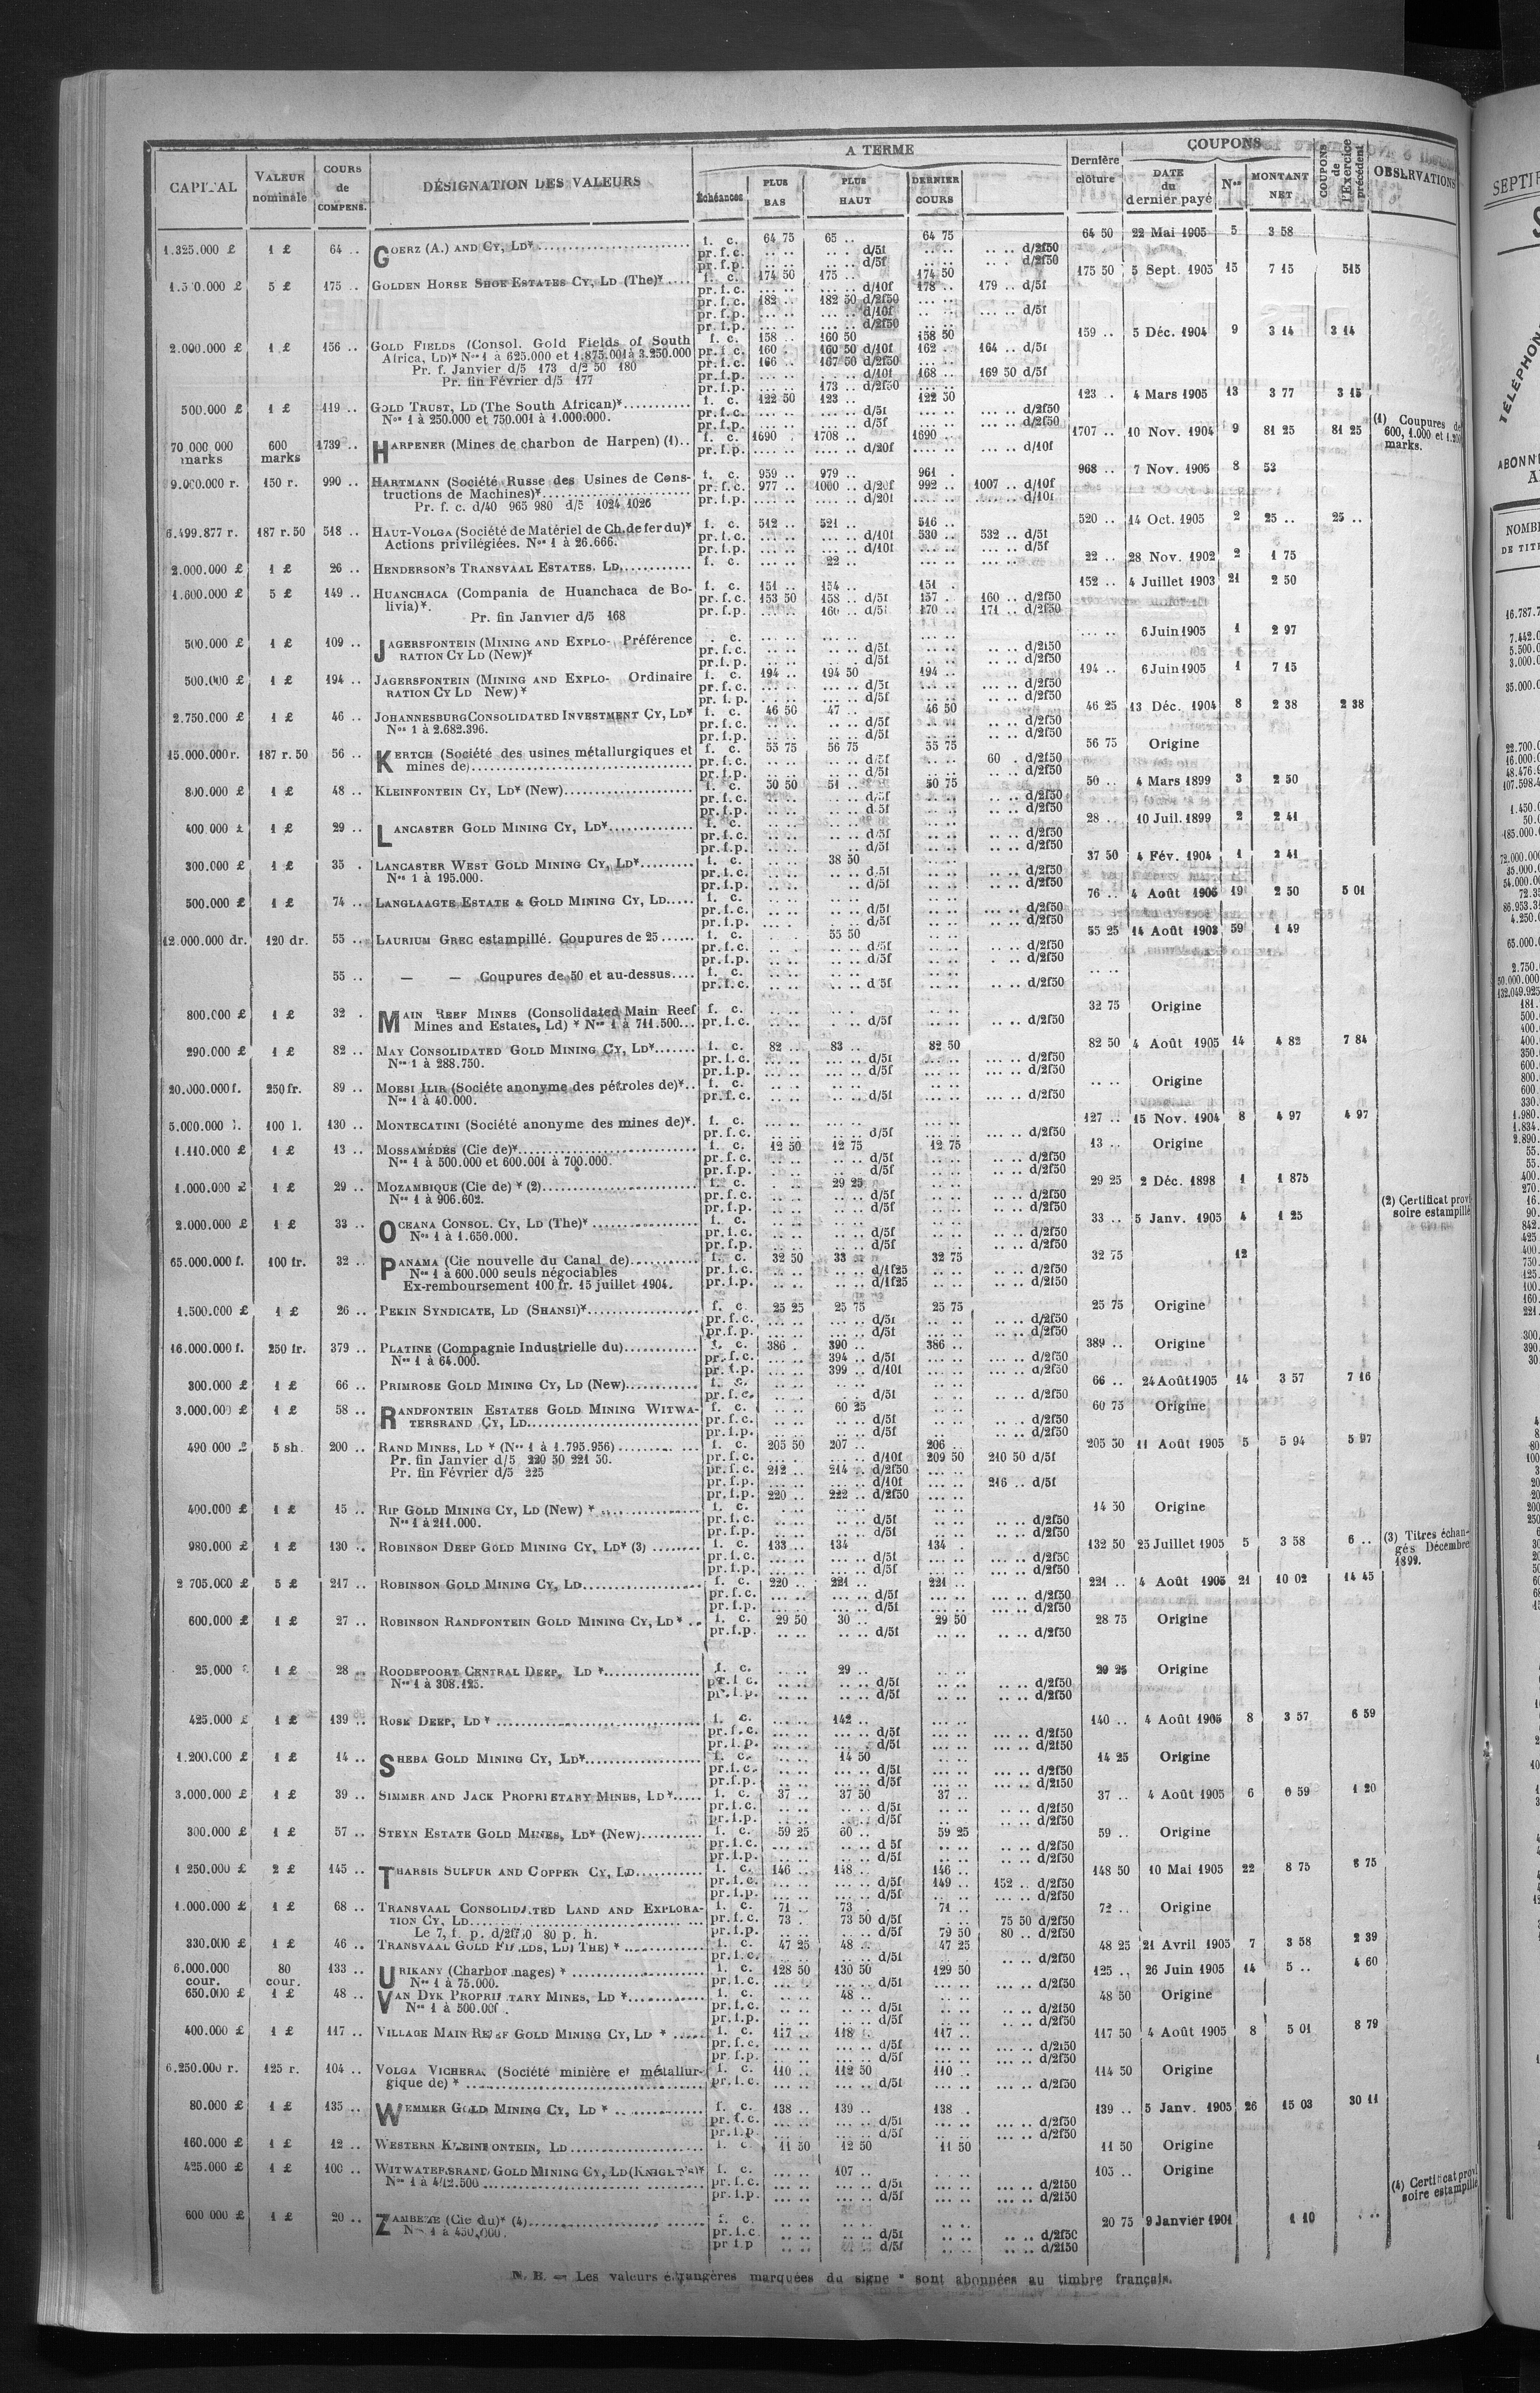 A TERME
COUPONS
CAPITAL VALEUR nominale COURS de COMPENS. DÉSIGNATION DES VALEURS Échéances PLUS BAS PLUS HAUT DERNIER COURS Dernière clôture DATE du dernier payé Nos MONTANT NET COUPONS de l'Exercice précédent OBSERVATIONS
1.325.000 £ 1 £ 64 .. GOERZ (A.) AND CY, LD* f. c. 64 75 65 .. 64 75 64 50 22 Mai 1905 5 3 58
pr. f. c. .. .. .. .. d/5f .. .. .. .. d/2f50
pr. f. p. .. .. .. .. d/5f .. .. .. .. d/2f50
5 £ 175 .. GOLDEN HORSE SHOE ESTATES CY, LD (The)* f. c. 174 50 175 .. 174 50 175 50 5 Sept. 1905 15 7 15 515
pr. f. c. .... .. .... .. d/10f 178 .. 179 .. d/5f
pr. f. c. 182 .. 182 50 d/2f50
pr. f. p. .... .. .... .. d/10f .... .. d/5f
pr. f. p. .... .. .... .. d/2f50
2.000.000 £ 1 £ 156 .. GOLD FIELDS (Consol. Gold Fields of South f. c. 158 .. 160 50 158 50 159 .. 5 Déc. 1904 9 3 14 3 14
Africa, LD)* Nos 1 à 625.000 et 1.875.001 à 3.250.000 pr. f. c. 160 . 160 50 d/10f 162 . 164 .. d/5f
Pr. f. Janvier d/5 173 d/2 50 180 pr. f. c. 166 .. 167 50 d/2f50
Pr. fin Février d/5 177 pr. f. p. .... .. .... .. d/10f 168 .. 169 50 d/5f
pr. f. p. .... .. 173 .. d/2f50
500.000 £ 1 £ 119 .. GOLD TRUST, LD (The South African)* f. c. 122 50 123 .. 122 50 123 .. 4 Mars 1905 13 3 77 3 15
Nos 1 à 250.000 et 750.001 à 1.000.000. pr. f. c. .... .. .... .. d/5f .... .. d/2f50
pr. f. p. .... .. .... .. d/5f .... .. d/2f50
70 000 000 marks 600 marks 1739 .. HARPENER (Mines de charbon de Harpen) (1).. f. c. 1690 . 1708 .. 1690 .. 1707 .. 10 Nov. 1904 9 81 25 81 25 (1) Coupures de 600, 1.000 et 1.200 marks.
pr. f. p. .... .. .... .. d/20f .... .. d/10f
9.000.000 r. 150 r. 990 .. HARTMANN (Société Russe des Usines de Cons- f. c. 959 .. 979 .. 961 . 968 .. 7 Nov. 1905 8 53
tructions de Machines)* pr. f. c. 977 .. 1000 .. d/20f 992 .. 1007 .. d/10f
Pr. f. c. d/40 965 980 d/5 1024 1026 pr. f. p. .... .. .... .. d/20f .... .. d/10f
6.499.877 r. 187 r. 50 518 .. HAUT-VOLGA (Société de Matériel de Ch. de fer du)* f. c. 512 .. 521 .. 516 .. 520 .. 14 Oct. 1905 2 25 .. 25 ..
Actions privilégiées. Nos 1 à 26.666. pr. f. c. .... .. .... .. d/10f 530 .. 532 .. d/5f
pr. f. p. .... .. .... .. d/10f .... .. d/5f
2.000.000 £ 1 £ 26 .. HENDERSON'S TRANSVAAL ESTATES. LD, f. c. .... .. 22 .. 22 .. 28 Nov. 1902 2 1 75
1.600.000 £ 5 £ 149 .. HUANCHACA (Compania de Huanchaca de Bo- f. c. 151 .. 154 .. 151 . 152 .. 4 Juillet 1903 21 2 50
livia)*. pr. f. c. 153 50 158 .. d/5f 157 . 160 .. d/2f50
Pr. fin Janvier d/5 168 pr. f. p. .... .. 160 .. d/5f 170 .. 171 .. d/2f50
500.000 £ 1 £ 109 .. JAGERSFONTEIN (MINING AND EXPLO- Préférence f. c. .... .. .... .. 6 Juin 1905 1 2 97
RATION CY LD (New)* pr. f. c. .... .. d/5f .. .. d/2f50
pr. f. p. .... .. d/5f .. .. d/2f50
500.000 £ 1 £ 194 .. JAGERSFONTEIN (MINING AND EXPLO- Ordinaire f. c. 194 .. 194 50 194 .. 194 .. 6 Juin 1905 1 7 15
RATION CY LD New)* pr. f. c. .... .. d/5f .... .. d/2f50
pr. f. p. .... .. d/5f .... .. d/2f50
2.750.000 £ 1 £ 46 .. JOHANNESBURG CONSOLIDATED INVESTMENT CY, LD* f. c. 46 50 47 .. 46 50 46 25 13 Déc. 1904 8 2 38 2 38
Nos 1 à 2.682.396. pr. f. c. .. .. d/5f .. .. d/2f50
pr. f. p. .. .. d/5f .. .. d/2f50
15.000.000 r. 187 r. 50 56 .. KERTCH (Société des usines métallurgiques et f. c. 55 75 56 75 55 75 56 75 Origine
mines de) pr. f. c. .. .. d/5f .. .. 60 . d/2f50
pr. f. p. .. .. d/5f .. .. d/2f50
800.000 £ 1 £ 48 .. KLEINFONTEIN CY, LD* (New) f. c. 50 50 51 .. 50 75 50 .. 4 Mars 1899 3 2 50
pr. f. c. .. .. d/5f .. .. d/2f50
pr. f. p. .. .. d/5f .. .. d/2f50
400.000 £ 1 £ 29 .. LANCASTER GOLD MINING CY, LD* f. c. .. .. 28 .. 10 Juil. 1899 2 2 41
pr. f. c. .. .. d/5f .. .. d/2f50
pr. f. p. .. .. d/5f .. .. d/2f50
300.000 £ 1 £ 35 . LANCASTER WEST GOLD MINING CY, LD* f. c. .. .. 38 50 37 50 4 Fév. 1904 1 2 41
Nos 1 à 195.000. pr. f. c. .. .. d/5f .. .. d/2f50
pr. f. p. .. .. d/5f .. .. d/2f50
500.000 £ 1 £ 74 .. LANGLAAGTE ESTATE & GOLD MINING CY, LD f. c. .. .. 76 .. 4 Août 1905 19 2 50 5 01
pr. f. c. .. .. d/5f .... .. d/2f50
pr. f. p. .. .. d/5f .... .. d/2f50
12.000.000 dr. 120 dr. 55 .. LAURIUM GREC estampillé. Coupures de 25 f. c. 55 50 55 25 14 Août 1903 59 1 49
pr. f. c. .. .. d/5f .. .. d/2f50
pr. f. p. .. .. d/5f .. .. d/2f50
55 .. — — Coupures de 50 et au-dessus f. c. .. ..
pr. f. c. .. .. d/5f .. .. d/2f50
800.000 £ 1 £ 32 . MAIN REEF MINES (Consolidated Main Reef f. c. .. .. 32 75 Origine
Mines and Estates, Ld) * Nos 1 à 711.500 pr. f. c. .. .. d/5f .. .. d/2f50
290.000 £ 1 £ 82 .. MAY CONSOLIDATED GOLD MINING CY, LD* f. c. 82 .. 83 .. 82 50 82 50 4 Août 1905 14 4 82 7 84
Nos 1 à 288.750. pr. f. c. .... .. d/5f .... .. d/2f50
pr. f. p. .... .. d/5f .... .. d/2f50
20.000.000 f. 250 fr. 89 .. MOESI ILIR (Sociéte anonyme des pétroles de)* f. c. .. .. Origine
Nos 1 à 40.000. pr. f. c. .. .. d/5f .... .. d/2f50
5.000.000 l. 100 l. 130 .. MONTECATINI (Société anonyme des mines de)*. f. c. .... .. 127 .. 15 Nov. 1904 8 4 97 4 97
pr. f. c. .. .. d/5f .... .. d/2f50
1.110.000 £ 1 £ 13 .. MOSSAMÉDÈS (Cie de)* f. c. 12 50 12 75 12 75 13 .. Origine
Nos 1 à 500.000 et 600.001 à 700.000. pr. f. c. .. .. d/5f .. .. d/2f50
pr. f. p. .. .. d/5f .. .. d/2f50
1.000.000 £ 1 £ 29 .. MOZAMBIQUE (Cie de) * (2) f. c. 29 25 29 25 2 Déc. 1898 1 1 875
Nos 1 à 906.602. pr. f. c. .. .. d/5f .. .. d/2f50 (2) Certificat provi-
pr. f. p. .. .. d/5f .. .. d/2f50 soire estampillé
2.000.000 £ 1 £ 33 .. OCEANA CONSOL. CY, LD (The)* f. c. .. .. 33 .. 5 Janv. 1905 4 1 25
Nos 1 à 1.650.000. pr. f. c. .. .. d/5f .. .. d/2f50
pr. f. p. .. .. d/5f .. .. d/2f50
65.000.000 f. 100 fr. 32 .. PANAMA (Cie nouvelle du Canal de) f. c. 32 50 33 32 75 32 75 12
Nos 1 à 600.000 seuls négociables pr. f. c. .. .. d/1f25 .. .. d/2f50
Ex-remboursement 100 fr. 15 juillet 1904. pr. f. p. .. .. d/1f25 .. .. d/2f50
1.500.000 £ 1 £ 26 .. PEKIN SYNDICATE, LD (SHANSI)* f. c. 25 25 25 75 25 75 25 75 Origine
pr. f. c. .... .. d/5f .. .. d/2f50
pr. f. p. .... .. d/5f .. .. d/2f50
16.000.000 f. 250 fr. 379 .. PLATINE (Compagnie Industrielle du) f. c. 386 . 390 .. 386 .. 389 .. Origine
Nos 1 à 64.000. pr. f. c. .... .. 394 .. d/5f .... .. d/2f50
pr. f. p. .... .. 399 .. d/10f .... .. d/2f50
300.000 £ 1 £ 66 .. PRIMROSE GOLD MINING CY, LD (New) f. c. .. .. 66 .. 24 Août 1905 14 3 57 7 16
pr. f. c. .. .. d/5f .... .. d/2f50
3.000.000 £ 1 £ 58 .. RANDFONTEIN ESTATES GOLD MINING WITWA- f. c. 60 25 60 75 Origine
TERSRAND CY, LD pr. f. c. .. .. d/5f .. .. d/2f50
pr. f. p. .. .. d/5f .. .. d/2f50
490 000 £ 5 sh. 200 .. RAND MINES, LD * (Nos 1 à 1.795.956) f. c. 205 50 207 .. 206 .. 205 50 11 Août 1905 5 5 94 5 97
Pr. fin Janvier d/5 220 50 221 50. pr. f. c. .... .. d/10f 209 50 210 50 d/5f
Pr. fin Février d/5 225 pr. f. c. 212 .. 214 .. d/2f50
pr. f. p. .... .. d/10f 216 .. d/5f
pr. f. p. 220 .. 222 .. d/2f50
400.000 £ 1 £ 15 .. RIP GOLD MINING CY, LD (New) * f. c. .. .. 14 50 Origine
Nos 1 à 211.000. pr. f. c. .. .. d/5f .. .. d/2f50
pr. f. p. .. .. d/5f .. .. d/2f50
980.000 £ 1 £ 130 .. ROBINSON DEEP GOLD MINING CY, LD* (3) f. c. 133 .. 134 134 . 132 50 25 Juillet 1905 5 3 58 6 .. (3) Titres échan-
pr. f. c. .... .. d/5f .... .. d/2f50 gés Décembre
pr. f. p. .... .. d/5f .... .. d/2f50 1899.
2 705.000 £ 5 £ 217 .. ROBINSON GOLD MINING CY, LD f. c. 220 .. 221 .. 221 .. 221 .. 4 Août 1905 21 10 02 14 45
pr. f. c. .... .. d/5f .... .. d/2f50
pr. f. p. .... .. d/5f .... .. d/2f50
600.000 £ 1 £ 27 .. ROBINSON RANDFONTEIN GOLD MINING CY, LD * f. c. 29 50 30 .. 29 50 28 75 Origine
pr. f. p. .. .. d/5f .. .. d/2f50
25.000 1 £ 28 .. ROODEPOORT CENTRAL DEEP, LD * f. c. .. .. 29 .. 29 25 Origine
Nos 1 à 308.125. pr. f. c. .. .. d/5f .. .. d/2f50
pr. f. p. .. .. d/5f .. .. d/2f50
425.000 £ 1 £ 139 .. ROSE DEEP, LD * f. c. .... .. 142 .. 140 .. 4 Août 1905 8 3 57 6 59
pr. f. c. .... .. d/5f .... .. d/2f50
pr. f. p. .... .. d/5f .... .. d/2f50
1.200.000 £ 1 £ 14 .. SHEBA GOLD MINING CY, LD* f. c. .. .. 14 50 14 25 Origine
pr. f. c. .... .. d/5f .... .. d/2f50
pr. f. p. .... .. d/5f .... .. d/2f50
3.000.000 £ 1 £ 39 .. SIMMER AND JACK PROPRIETARY MINES, LD* f. c. 37 .. 37 50 37 .. 37 .. 4 Août 1905 6 0 59 1 20
pr. f. c. .. .. d/5f .. .. d/2f50
pr. f. p. .. .. d/5f .. .. d/2f50
300.000 £ 1 £ 57 .. STEYN ESTATE GOLD MINES, LD* (New) f. c. 59 25 60 .. 59 25 59 .. Origine
pr. f. c. .. .. d 5f .. .. d/2f50
pr. f. p. .. .. d/5f .. .. d/2f50
1 250.000 £ 2 £ 145 .. THARSIS SULFUR AND COPPER CY, LD f. c. 146 .. 148 .. 146 .. 148 50 10 Mai 1905 22 8 75 75
pr. f. c. .... .. d/5f 149 .. 152 .. d/2f50
pr. f. p. .... .. d/5f .... .. d/2f50
1.000.000 £ 1 £ 68 .. TRANSVAAL CONSOLIDATED LAND AND EXPLORA- f. c. 71 .. 73 . 71 .. 72 .. Origine
TION CY, LD pr. f. c. 73 . 73 50 d/5f .. .. 75 50 d/2f50
Le 7, f. p. d/2f50 80 p. h. pr. f. p. .. .. d/5f 79 50 80 .. d/2f50
330.000 £ 1 £ 46 .. TRANSVAAL GOLD FIELDS, LD) THE) * f. c. 47 25 48 .. 47 25 48 25 21 Avril 1905 7 3 58 2 39
pr. f. c. .. .. d/5f .. .. d/2f50
6.000.000 cour. 80 cour. 133 .. URIKANY (Charbonnages) * f. c. 128 50 130 50 129 50 125 .. 26 Juin 1905 14 5 .. 4 60
Nos 1 à 75.000. pr. f. c. .... .. d/5f .... .. d/2f50
650.000 £ 1 £ 48 .. VAN DYK PROPRIETARY MINES, LD * f. c. .. .. 48 .. 48 50 Origine
Nos 1 à 500.000. pr. f. c. .. .. d/5f .. .. d/2f50
pr. f. p. .. .. d/5f .. .. d/2f50
400.000 £ 1 £ 117 .. VILLAGE MAIN REEF GOLD MINING CY, LD * f. c. 117 .. 118 . 117 .. 117 50 4 Août 1905 8 5 01 8 79
pr. f. c. .... .. d/5f .... .. d/2f50
pr. f. p. .... .. d/5f .... .. d/2f50
6.250.000 r. 125 r. 104 .. VOLGA VICHERA (Société minière et métallur- f. c. 110 .. 112 50 110 .. 114 50 Origine
gique de) * pr. f. c. .... .. d/5f .... .. d/2f50
80.000 £ 1 £ 135 .. WEMMER GOLD MINING CY, LD * f. c. 138 .. 139 .. 138 . 139 .. 5 Janv. 1905 26 15 03 30 11
pr. f. c. .... .. d/5f .... .. d/2f50
pr. f. p. .... .. d/5f .... .. d/2f50
160.000 £ 1 £ 12 .. WESTERN KLEINFONTEIN, LD f. c. 11 50 12 50 11 50 11 50 Origine
425.000 £ 1 £ 100 .. WITWATERSRAND GOLD MINING CY, LD (KNIGHT'S)* f. c. .... .. 107 .. 105 .. Origine
Nos 1 à 412.500 pr. f. c. .... .. d/5f .... .. d/2f50
pr. f. p. .... .. d/5f .... .. d/2f50 (4) Certificat provi-
600 000 £ 1 £ 20 .. ZAMBEZE (Cie du)* (4) f. c. .. .. 20 75 9 Janvier 1901 1 10 .. soire estampillé
Nos 1 à 450.000. pr. f. c. .. .. d/5f .. .. d/2f50
pr f. p .. .. d/5f .. .. d/2f50
N. B. — Les valeurs étrangères marquées du signe * sont abonnées au timbre français.